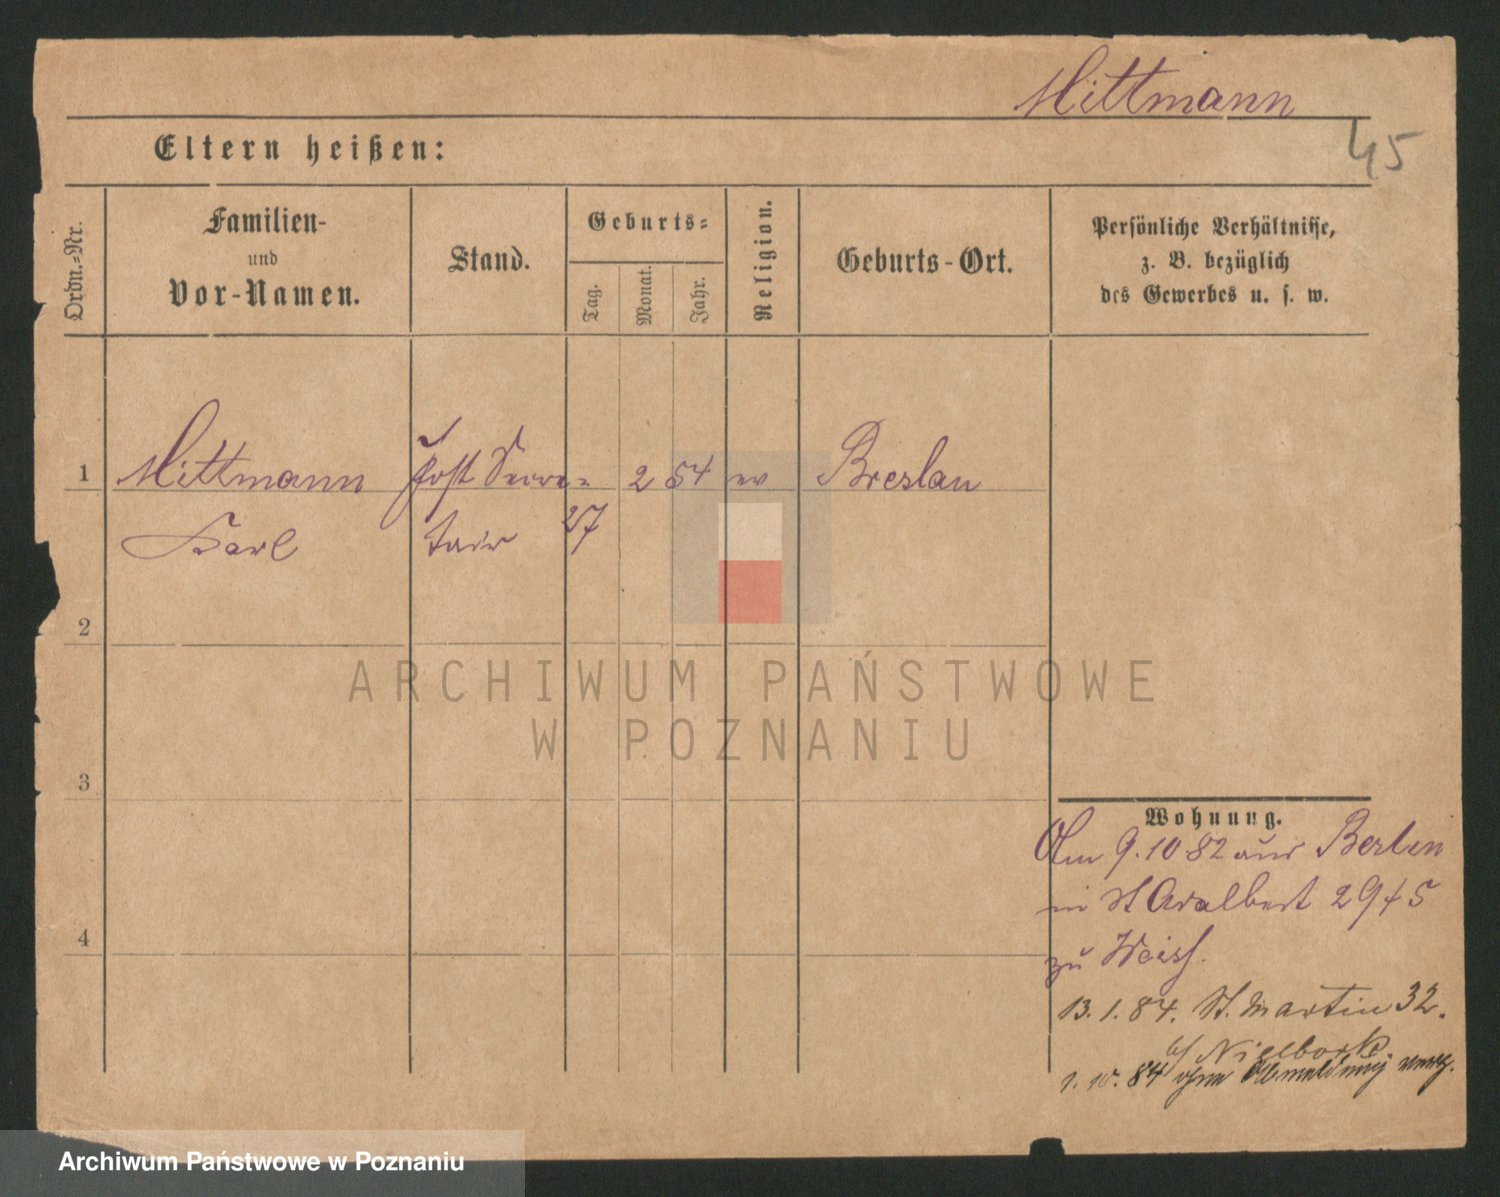 Mittmann
45
Eltern heißen:
Ordn.-Nr.
Familien-
und
Vor-Namen.
Stand.
Geburts-
Tag.
Monat.
Jahr.
Religion.
Geburts-Ort.
Persönliche Verhältnisse,
z. B. bezüglich
des Gewerbes u. s. w.
1 Mittmann Post Secre- 2 54 ev Breslau
Karl tair 27
2
3
4
ARCHIWUM PAŃSTWOWE
W POZNANIU
Wohnung.
Am 9.10.82 aus Berlin
in St Adalbert 29/5
zu Weiss.
13.1.84. St. Martin 32.
b/
1.10.84 ohne Abmeldung verz.
Archiwum Państwowe w Poznaniu